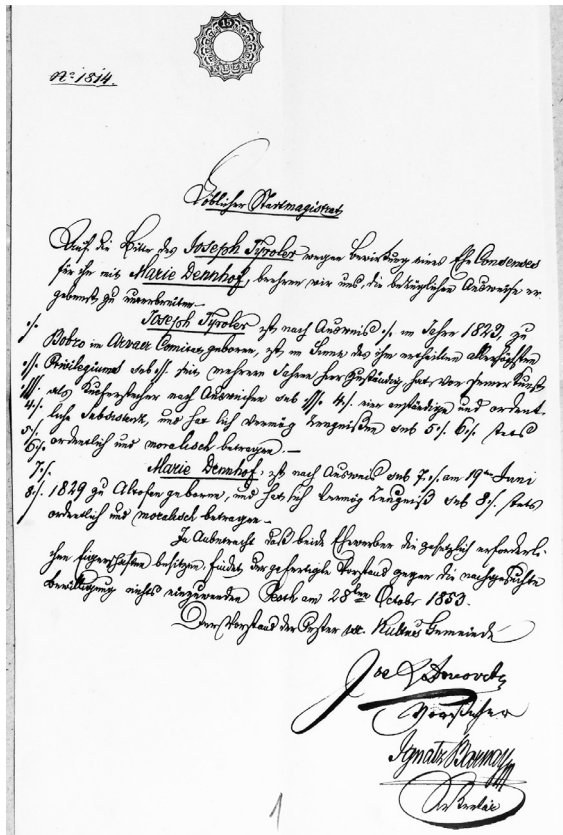 15
No 1814.
Löblicher Stadtmagistrat
Auf die Bitte des Joseph Tyroler wegen Bewirkung eines Ehe Consenses
für ihn mit Marie Dennhof, beehren wir uns, die bezüglichen Ausweise er
gebenst zu unterbreiten.
Joseph Tyroler ist nach Ausweis ·/. im Jahre 1823, zu
·/. Bobro im Arvaer Comitat geboren, ist im Sinne des ihm ertheilten allerhöchsten
·//. Privilegiums sub ·//. seit mehrern Jahren hier zuständig, hat von seiner Kunst
·///. als Kupferstecher nach Ausweisen sub ·///. 4·/. eine anständige und ordent
4·/. liche Subsistenz, und hat sich vermög Zeugnißen sub 5·/. 6·/. stets
5·/.
6·/. ordentlich und moralisch betragen.—
7·/. Marie Dennhof, ist nach Ausweis sub 7·/. am 19ten Juni
8·/. 1829 zu Altofen geboren, und hat sich vermög Zeugniß sub 8·/. stets
ordentlich und moralisch betragen.—
In Anbetracht daß beide Ehewerber die gesetzlich erforderli-
chen Eigenschaften besitzen, findet der gefertigte Vorstand gegen die nachgesuchte
Bewilligung nichts einzuwenden Pesth am 28ten Octobr 1853.
Der Vorstand der Pester isr. Kultus Gemeinde
Vorsteher
Ignatz Barnay
Sekretär
1